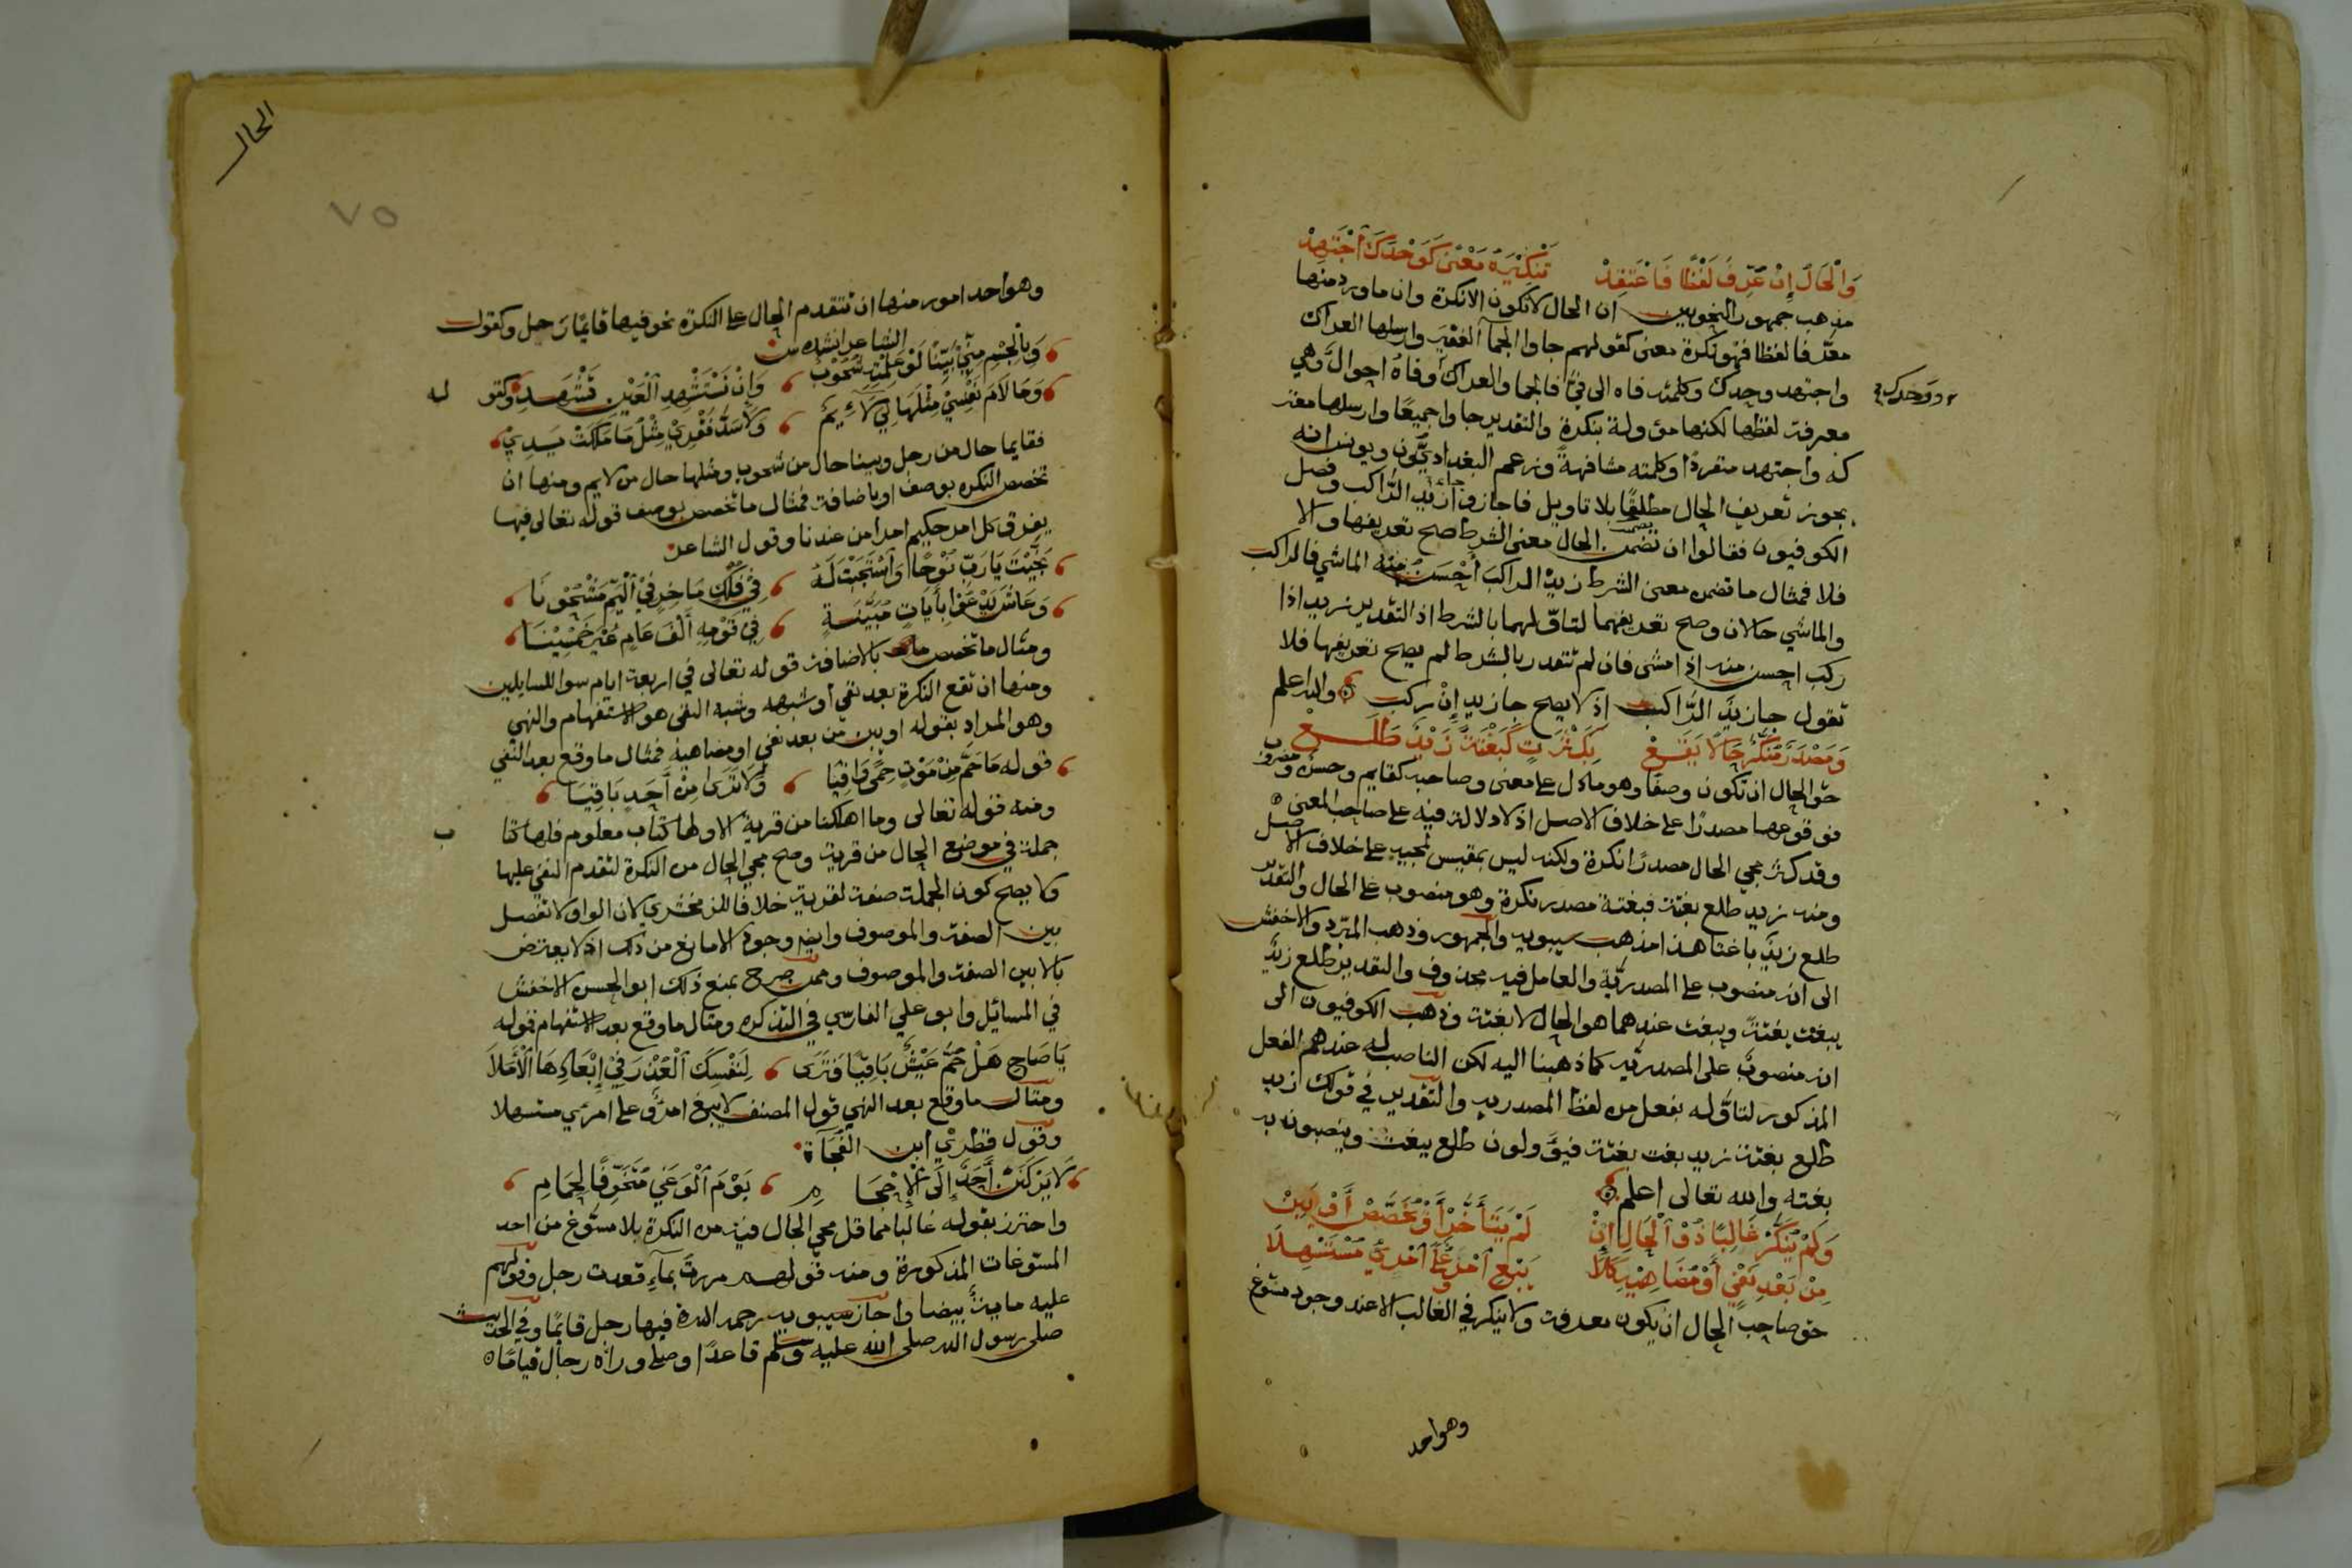 وَالْحَالُ إِنْ عُرِّفَ لَفْظًا فَاعْتَقِدْ تَنْكِيرَهُ مَعْنًى كَوَحْدَكَ اجْتَهِدْ
مذهب جمهور النحويين ان الحال لا تكون الا نكرة وان ما ورد منها
معرّفا لفظا فهو نكرة معنى كقولهم جاوا الجمآ الغفير وارسلها العراك
واجتهد وحدك وكلمته فاه الى فيّ فالجما والعراك وفاهُ احوالٌ وهي
ووحدك
معرفة لفظها لكنها مؤولة بنكرة والتقدير جاوا جميعًا وارسلها معتر
كه واجتهد منفردًا وكلمته مشافهةً وزعم البغداديُّون ويونس انه
يجوز تعريف الحال مطلقًا بلا تاويل فاجازوا جاء زيد الرّاكب وفصل
الكوفيون فقالوا ان تضمن الحال معنى الشرط صح تعريفها والا
فلا فمثال ما تضمن معنى الشرط زيدٌ الراكبَ أحسن منه الماشي فالراكب
والماشي حالان وصح تعريفهما لتاوّلهما بالشرط اذ التقدير زيد اذا
ركب احسن منه اذا مشى فان لم تتقدر بالشرط لم يصح تعريفها فلا
تقول جا زيدٌ الرّاكب اذ لا يصح جا زيد إنْ ركب والله اعلم
وَمَصْدَرٌ مُنَكَّرٌ حَالًا يَقَعْ بِكَثْرَةٍ كَبَغْتَةً زَيْدٌ طَلَعْ
حق الحال ان تكون وصفًا وهو ما دل على معنى وصاحبه كقايم وحسن ومضروب
فوقوعها مصدرًا على خلاف الاصل اذ لا دلالة فيه على صاحب المعنى
وقد كثر مجي الحال مصدرًا نكرة ولكنه ليس بمقيس لمجيه على خلاف الاصل
ومنه زيد طلع بغتة فبغتة مصدر نكرة وهو منصوب على الحال والتقدير
طلع زيدٌ باغتا هذا مذهب سيبويه والجمهور وذهب المبرّد والاخفش
الى انه منصوب على المصدريّة والعامل فيه محذوف والتقدير طلع زيدٌ
يبغت بغتةً ويبغت عندهما هو الحال لا بغتة وذهب الكوفيون الى
انه منصوبٌ على المصدريّة كما ذهبنا اليه لكن الناصب له عندهم الفعل
المذكور لتاوّله بفعل من لفظ المصدر والتقدير في قولك زيد
طلع بغتة زيد بغت بغتة فيؤولون طلع ببغت وينصبون به
بغتة والله تعالى اعلم
وَلَمْ يُنَكَّرْ غَالِبًا ذُو الْحَالِ إِنْ لَمْ يَتَأَخَّرْ أَوْ يُخَصَّصْ أَوْ يَبِنْ
مِنْ بَعْدِ نَفْيٍ أَوْ مُضَاهِيهِ كَلَا يَبْغِ امْرُؤٌ عَلَى امْرِئٍ مُسْتَسْهِلَا
حق صاحب الحال ان يكون معرفة ولا ينكر في الغالب الا عند وجود مسّوغ
وهو احد
الحال
٧٥
وهو احد امور منها ان تتقدم الحال على النكرة نحو فيها قايمًا رجل وكقول
الشاعر انشده س
وَبِالْجِسْمِ مِنِّي بَيِّنًا لَوْ عَلِمْتِهِ شُحُوبٌ وَإِنْ تَسْتَشْهِدِ الْعَيْنَ تَشْهَدِ وكقو له
وَمَا لَامَ نَفْسِيْ مِثْلَهَا لِيَ لَائِمٌ وَلَا سَدَّ فَقْرِيْ مِثْلُ مَا مَلَكَتْ يَدِيْ
فقايما حال من رجل وبينا حال من شحوب ومثلها حال من لايم ومنها ان
تخصص النكره بوصف او باضافة فمثال ما تخصص بوصف قوله تعالى فيها
يفرق كل امر حكيم امرا من عندنا وقول الشاعر
نَجَّيْتَ يَا رَبِّ نُوْحًا وَاسْتَجَبْتَ لَهُ فِيْ فُلُكٍ مَاخِرٍ فِيْ الْيَمِّ مَشْحُوْنَا
وَعَاشَ يَدْعُوْ بِآيَاتٍ مُبَيَّنَةٍ فِيْ قَوْمِهِ أَلْفَ عَامٍ غَيْرَ خَمْسِيْنَا
ومثال ما تخصص بالاضافة قوله تعالى في اربعة ايام سوا للسايلين
ومنها ان تقع النكرة بعد نفي او شبهه وشبه النفي هو الاستفهام والنهي
وهو المراد بقوله او يبن من بعد نفي او مضاهيه فمثال ما وقع بعد النفي
قوله مَا حُمَّ مِنْ مَوْتٍ حِمًى وَاقِيَا وَلَا تَرَى مِنْ أَحَدٍ بَاقِيَا
ومنه قوله تعالى وما اهلكنا من قرية الا ولها كتاب معلوم فلها كتا ب
جملة في موضع الحال من قرية وصح مجي الحال من النكرة لتقدم النفي عليها
ولا يصح كون الجملة صفة لقرية خلافا للزمخشري لان الواو لا تفصل
بين الصفة والموصوف وايضا وجود الا مانع من ذلك اذ لا يعترض
بالا بين الصفة والموصوف وممن صرح بمنع ذلك ابو الحسن الاخفش
في المسائل وابو علي الفارسي في التذكره ومثال ما وقع بعد الاستفهام قوله
يَا صَاحِ هَلْ حُمَّ عَيْشٌ بَاقِيًا فَتَرَى لِنَفْسِكَ الْعُذْرَ فِيْ إِبْعَادِهَا الْأَمَلَا
ومثال ما وقع بعد النهي قول المصنف لا يبغ امرؤ على امرئ مستسهلا
وقول قطري ابن الفُجَآة
لَا يَرْكَنَنْ أَحَدٌ إِلَى الْإِحْجَامِ يَوْمَ الْوَغَى مُتَخَوِّفًا لِحِمَامِ
واحترز بقوله غالبا مما قل مجي الحال فيه من النكرة بلا مسّوغ من احد
المسّوغات المذكورة ومنه قولهم مررت بمآءٍ قعدة رجل وقولهم
عليه مايةٌ بيضا واجاز سيبويه رحمه الله فيها رجل قايمًا وفي الحديث
صلى رسول الله صلى الله عليه وسلم قاعدًا وصلى وراه رجال قيامًا